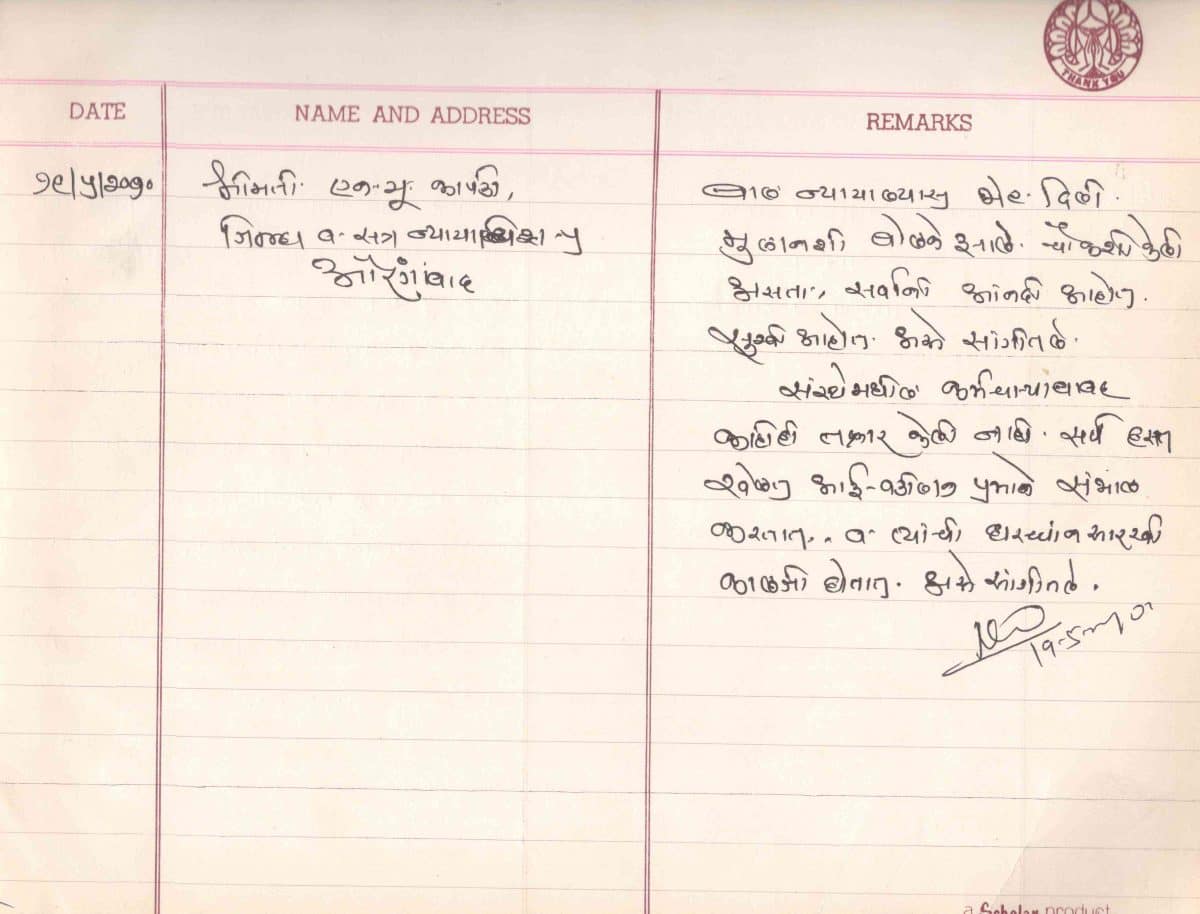 THANK YOU
DATE NAME AND ADDRESS REMARKS
१९/५/२०१०
श्रीमती. एन. यू. कापडी,
जिल्हा व सत्र न्यायाधिश-५
औरंगाबाद
बाल न्यायालयास भेट दिली.
मुलानशी बोलणे झाले. चौकशी केली
असता, सर्वांनी आंनदी आहोत.
सुखी आहोत. असे सांगीतले.
संस्थेमधील कर्मचाऱ्याबाबद
काहीही तक्रार केली नाही. सर्व हसत
खेळत आई-वडीलां प्रमाणे संभाळ
करतात.. व त्यांची सारखी
काळजी घेतात. असे सांगीतले.
a Scholar product